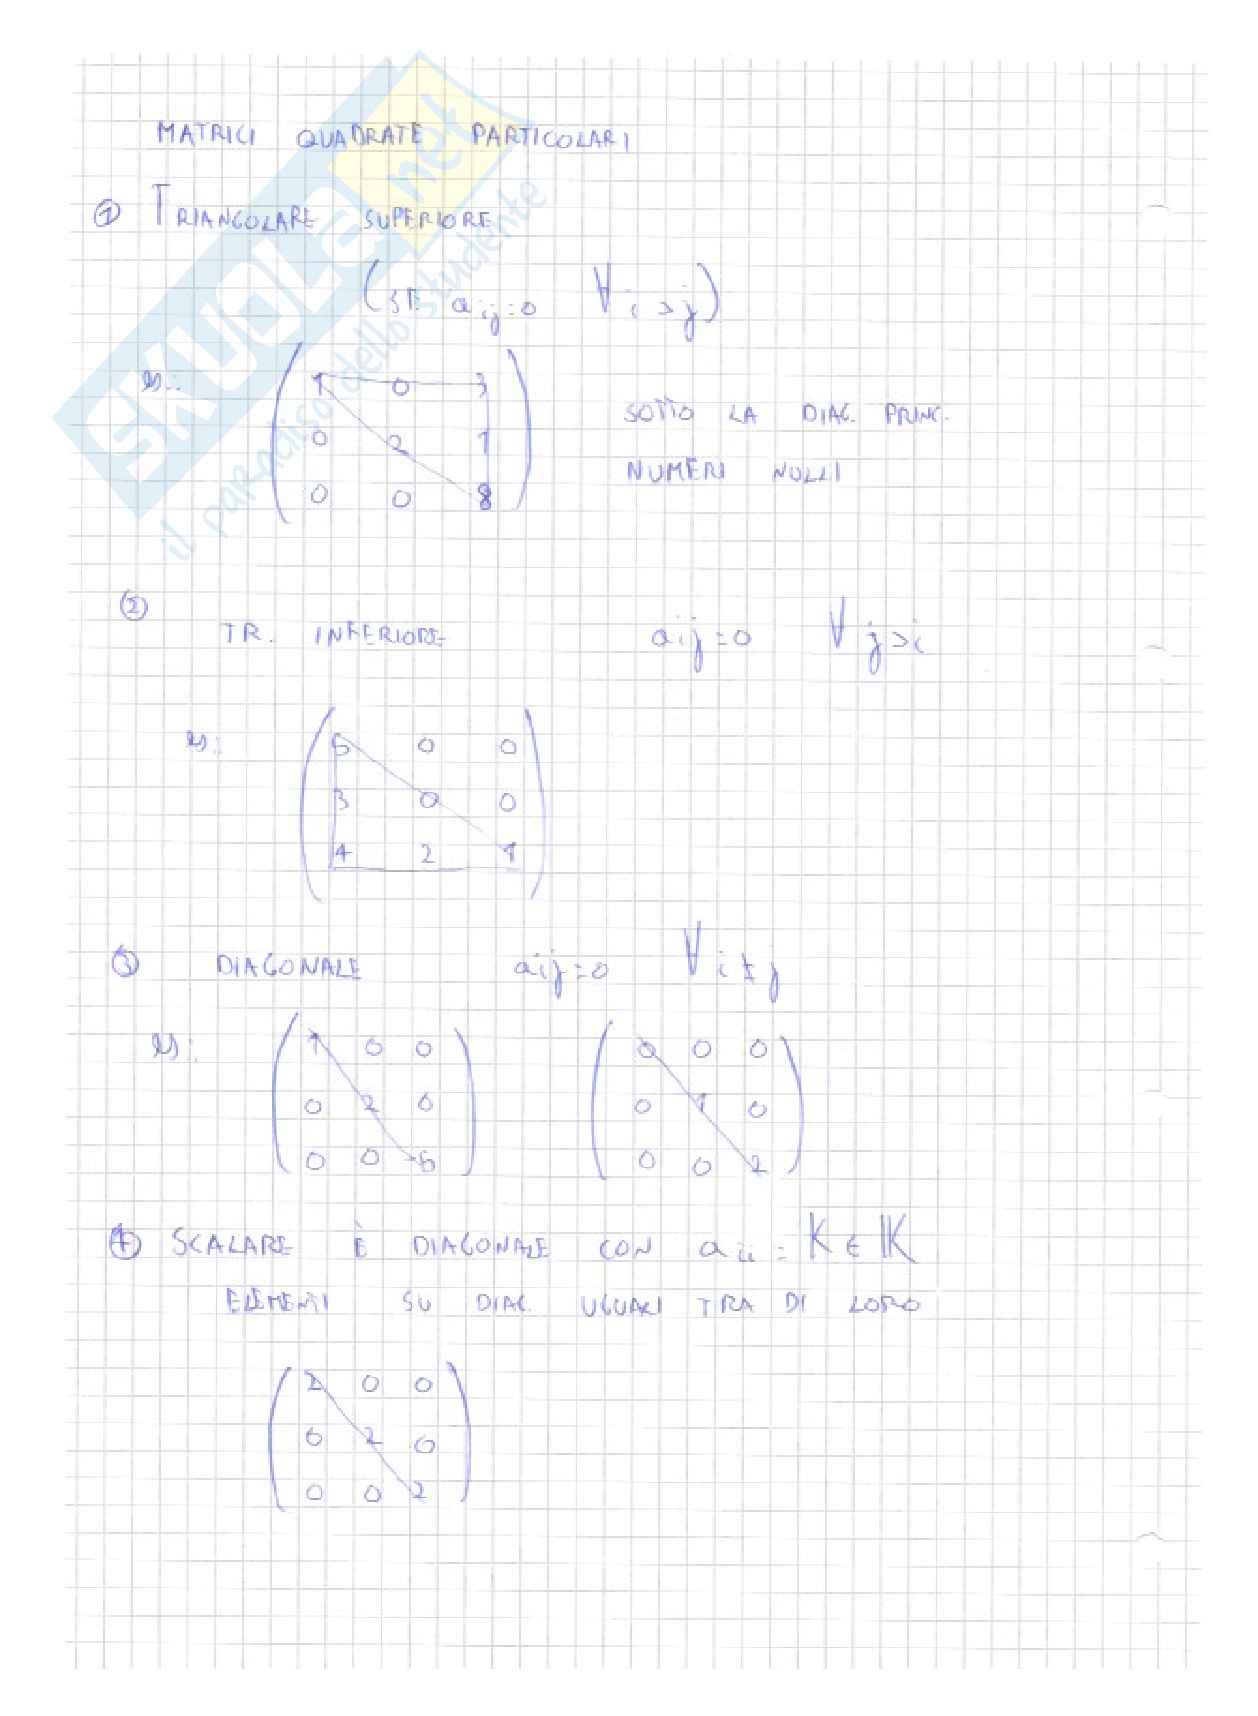 MATRICI QUADRATE PARTICOLARI
① TRIANGOLARE SUPERIORE
(SE a_ij=0 ∀ i>j)
es.:
1 0 3
0 2 1
0 0 8
SOTTO LA DIAG. PRINC.
NUMERI NULLI
②
TR. INFERIORE a_ij=0 ∀ j>i
es.:
5 0 0
3 0 0
4 2 1
③ DIAGONALE a_ij=0 ∀ i≠j
es.:
1 0 0
0 2 0
0 0 -5
0 0 0
0 1 0
0 0 2
④ SCALARE È DIAGONALE CON a_ii = K ∈ 𝕂
ELEMENTI SU DIAG. UGUALI TRA DI LORO
2 0 0
0 2 0
0 0 2
SKUOLA.net
il paradiso dello studente